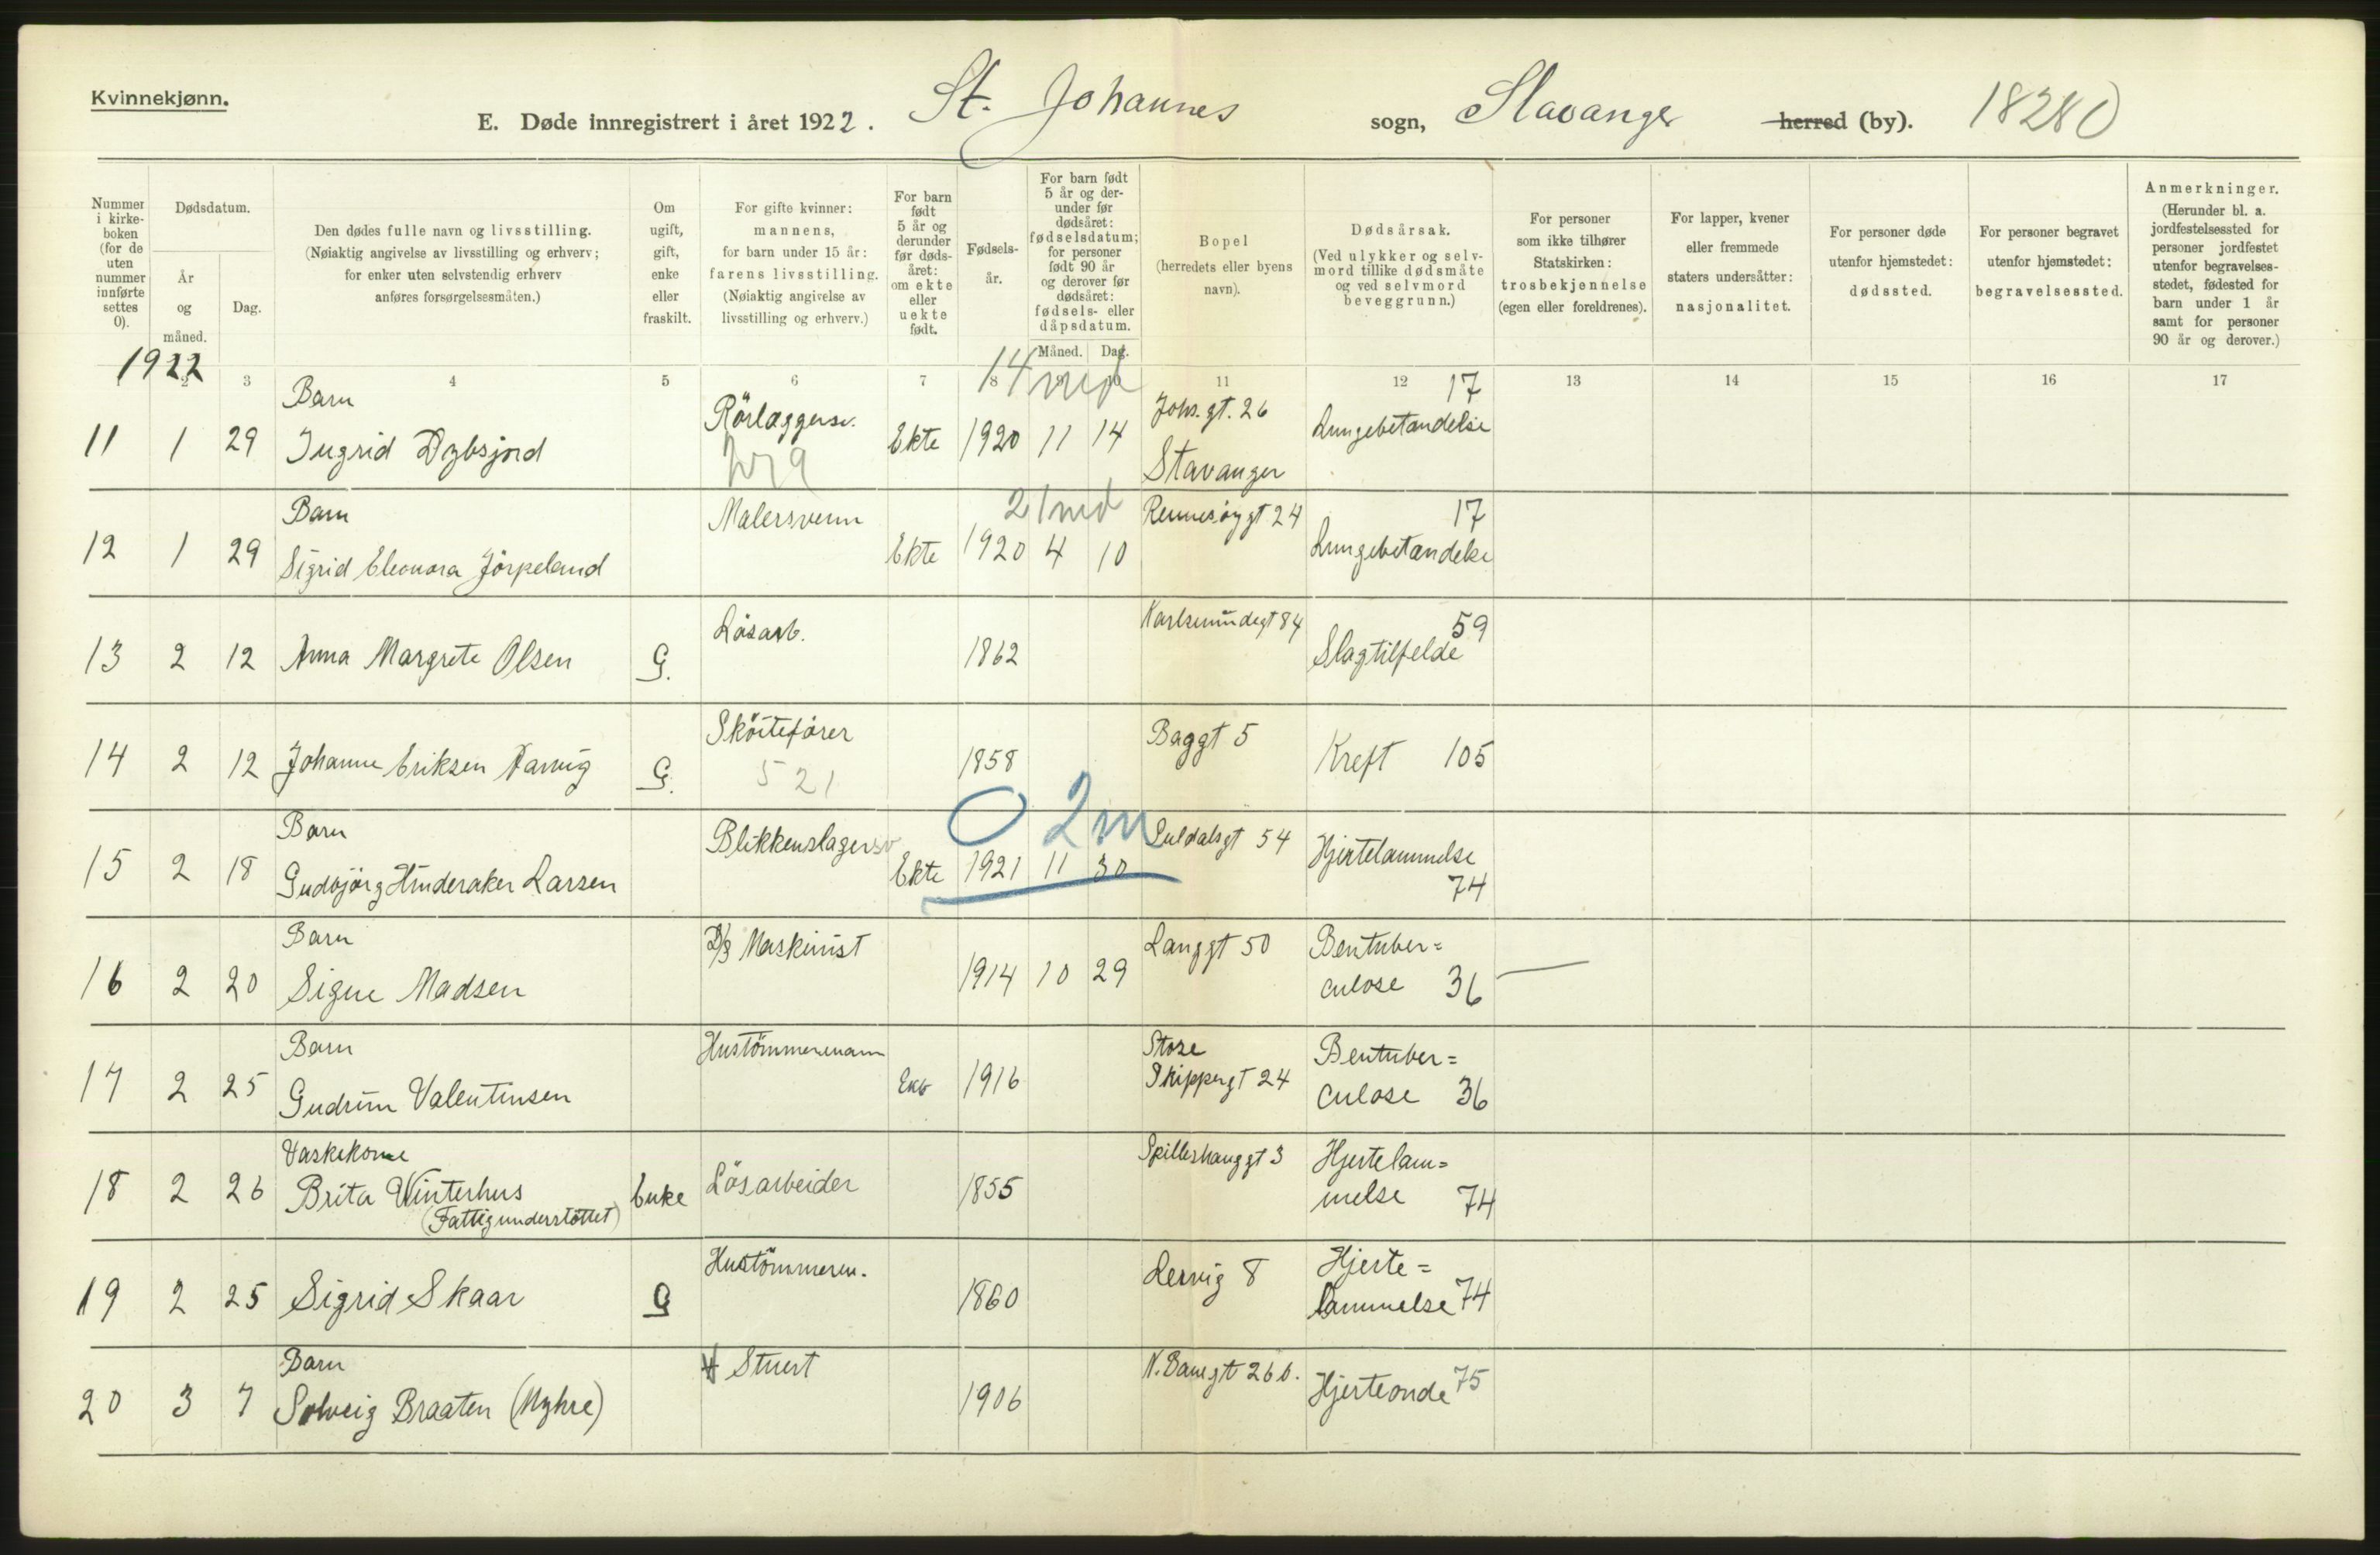 Kvinnekjønn.
E. Døde innregistrert i året 1922. St. Johannes sogn, Stavanger herred (by). 18280
Nummer i kirkeboken (for de uten nummer innførte settes 0).
Dødsdatum.
År og måned.
Dag.
Den dødes fulle navn og livsstilling.
(Nøiaktig angivelse av livsstilling og erhverv; for enker uten selvstendig erhverv anføres forsørgelsesmåten.)
Om ugift, gift, enke eller fraskilt.
For gifte kvinner: mannens, for barn under 15 år: farens livsstilling.
(Nøiaktig angivelse av livsstilling og erhverv.)
For barn født 5 år og derunder før dødsåret: om ekte eller uekte født.
Fødselsår.
For barn født 5 år og derunder før dødsåret: fødselsdatum; for personer født 90 år og derover før dødsåret: fødsels- eller dåpsdatum.
Måned. Dag.
Bopel (herredets eller byens navn).
Dødsårsak.
(Ved ulykker og selvmord tillike dødsmåte og ved selvmord beveggrunn.)
For personer som ikke tilhører Statskirken: trosbekjennelse (egen eller foreldrenes).
For lapper, kvener eller fremmede staters undersåtter: nasjonalitet.
For personer døde utenfor hjemstedet: dødssted.
For personer begravet utenfor hjemstedet: begravelsessted.
Anmerkninger.
(Herunder bl. a. jordfestelsessted for personer jordfestet utenfor begravelsesstedet, fødested for barn under 1 år samt for personer 90 år og derover.)
1 2 3 4 5 6 7 8 9 10 11 12 13 14 15 16 17
1922
14 md
Barn Rörlæggersv. Johs. gt. 26 17
11 1 29 Ingrid Dybsjord Ekte 1920 11 14 Stavanger Lungebetændelse
Barn Malersvenn 21 md Rennesöygt 24 17
12 1 29 Sigrid Eleonora Jörpeland Ekte 1920 4 10 Lungebetændelse
Lösarb. Karlsmindegt 84 59
13 2 12 Anna Margrete Olsen G. 1862 Slagtilfelde
Sköiteförer Baggt 5
14 2 12 Johanne Eriksen G. 521 1858 Kreft 105
Barn Blikkenslagersv 0 2 m Suldalsgt 54
15 2 18 Gudbjörg Hinderaker Larsen Ekte 1921 11 30 Hjertelammelse 74
Barn D/S Maskinist Langgt 50 Bentuber=
16 2 20 Signe Madsen 1914 10 29 culose 36
Barn Hustömmermann Store Bentuber=
17 2 25 Gudrun Valentinsen Ekte 1916 Skippergt 24 culose 36
Vaskekone Spilderhauggt 3 Hjertelam=
18 2 26 Brita Winterhus Enke Lösarbeider 1855 melse 74
(Fattigunderstöttet)
Hustömmerm. Lervig 8 Hjerte=
19 2 25 Sigrid Skaar G 1860 lammelse 74
Barn Stuert N. Banegt 26 b.
20 3 7 Solveig Braaten (Myhre) 1906 Hjerteonde 75